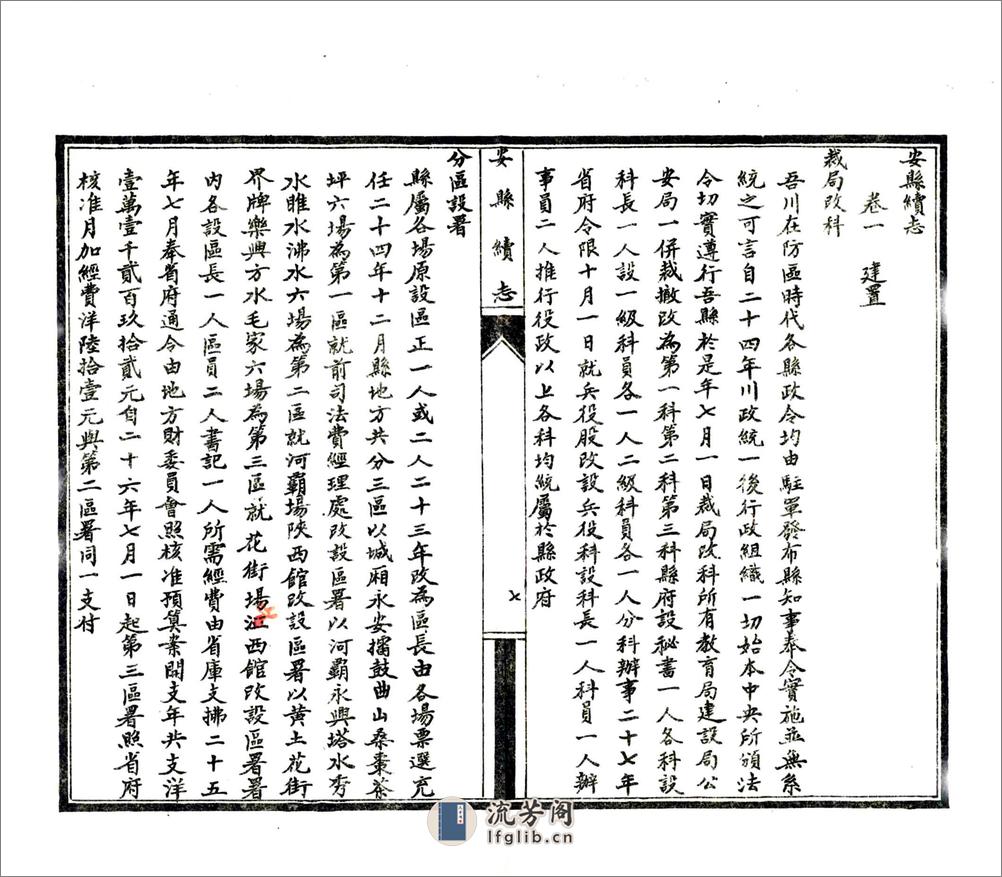 安縣續志
卷一　建置
裁局改科
吾川在防區時代各縣政令均由駐軍發布縣知事奉令實施並無系
統之可言自二十四年川政統一後行政組織一切始本中央所頒法
令切實遵行吾縣於是年七月一日裁局改科所有教育局建設局公
安局一併裁撤改為第一科第二科第三科縣府設秘書一人各科設
科長一人設一級科員各一人二級科員各一人分科辦事二十七年
省府令限十月一日就兵役股改設兵役科設科長一人科員一人辦
事員二人推行役政以上各科均統屬於縣政府
安縣續志
七
分區設署
縣屬各場原設區正一人或二人二十三年改為區長由各場票選充
任二十四年十二月縣地方共分三區以城廂永安擂鼓曲山桑棗茶
坪六場為第一區就前司法費經理處改設區署以河霸永興塔水秀
水睢水沸水六場為第二區就河霸場陝西館改設區署以黃土花街
界牌樂興方水毛家六場為第三區就花街場江西館改設區署署
內各設區長一人區員二人書記一人所需經費由省庫支拂二十五
年七月奉省府通令由地方財委員會照核准預算案開支年共支洋
壹萬壹千貳百玖拾貳元自二十六年七月一日起第三區署照省府
核准月加經費洋陸拾壹元與第二區署同一支付
江
流芳阁
lfglib.cn